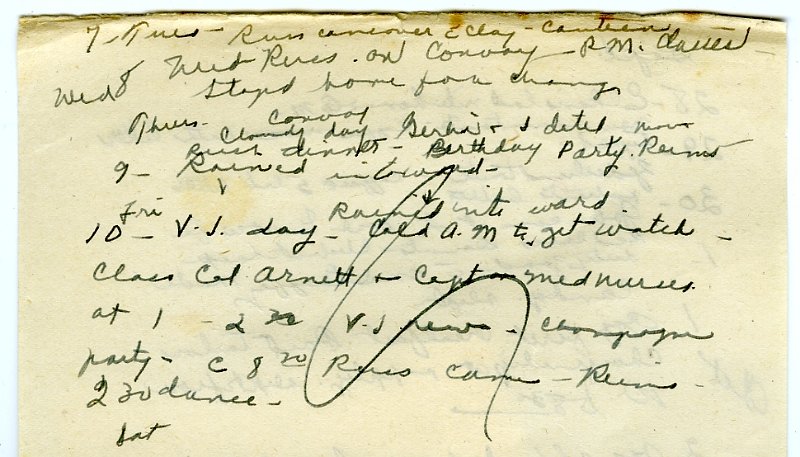 7 - Tues - Russ came over E Clay - Canteen
Wed 8 Need Reires. on Convoy - P.M. Classes -
Stayed home for a change
Thurs. Convoy
Cloudy day Gerha + I dated now
Rush dinner - Birthday Party. Reims
9 - Rained in toward -
Fri Rained into ward
10 - V.J. day - Cold A.M to get watch -
Class Col Arnett + Capt on Med Nurses.
at 1 - 2 30 V.J. news - Champagne
party - C 8 30 Russ came - Reims -
2 30 dance -
Sat